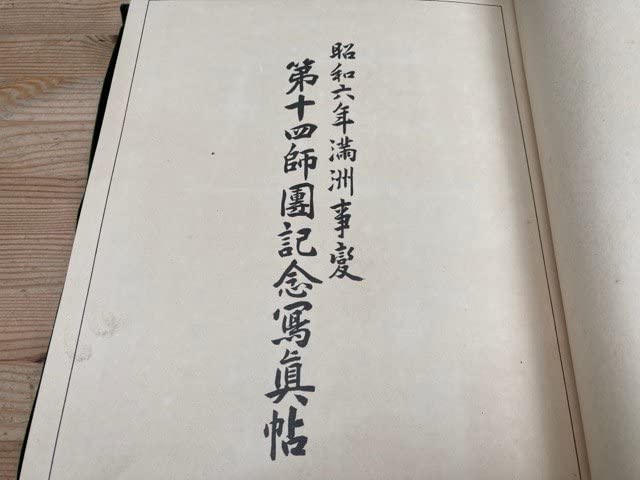 昭和六年満洲事変
第十四師團記念寫眞帖